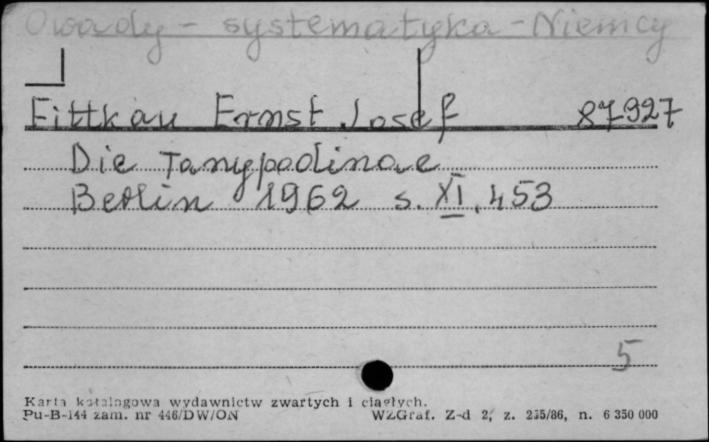 Owady - systematyka - Niemcy
Fittkau Ernst Josef 87927
Die Tanypodinae
Berlin 1962 s. XI, 453
5
Karta katalogowa wydawnictw zwartych i ciągłych.
Pu-B-144 zam. nr 446/DW/ON WZGraf. Z-d 2, z. 235/86, n. 6 350 000